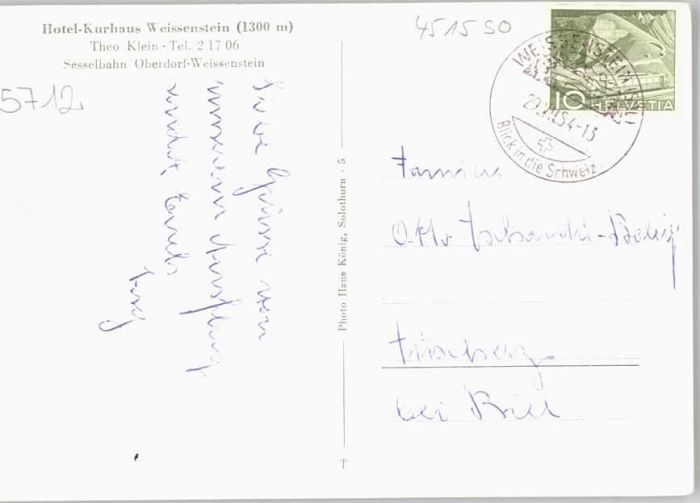 Hotel-Kurhaus Weissenstein (1300 m)
Theo Klein - Tel. 2 17 06
Sesselbahn Oberdorf-Weissenstein
5712
4515 SO
WEISSENSTEIN (SOL)
54-13
Blick in die Schweiz
10 HELVETIA
Liebe Grüsse von
unserem Ausflug
sendet Euch
Photo Hans König, Solothurn - 5
Familie
Otto
Tüscherz
bei Biel